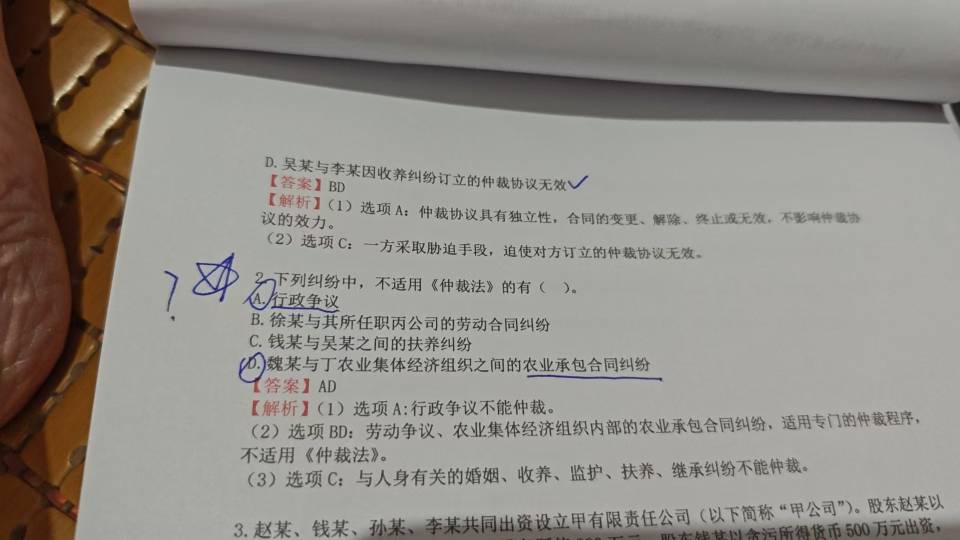 D. 吴某与李某因收养纠纷订立的仲裁协议无效✓
【答案】BD
【解析】（1）选项 A：仲裁协议具有独立性，合同的变更、解除、终止或无效，不影响仲裁协
议的效力。
（2）选项 C：一方采取胁迫手段，迫使对方订立的仲裁协议无效。
? ☆
2. 下列纠纷中，不适用《仲裁法》的有（ ）。
A. 行政争议
B. 徐某与其所任职丙公司的劳动合同纠纷
C. 钱某与吴某之间的扶养纠纷
D. 魏某与丁农业集体经济组织之间的农业承包合同纠纷
【答案】AD
【解析】（1）选项 A:行政争议不能仲裁。
（2）选项 BD：劳动争议、农业集体经济组织内部的农业承包合同纠纷，适用专门的仲裁程序，
不适用《仲裁法》。
（3）选项 C：与人身有关的婚姻、收养、监护、扶养、继承纠纷不能仲裁。
3. 赵某、钱某、孙某、李某共同出资设立甲有限责任公司（以下简称“甲公司”）。股东赵某以
股东钱某以贪污所得货币 500 万元出资，